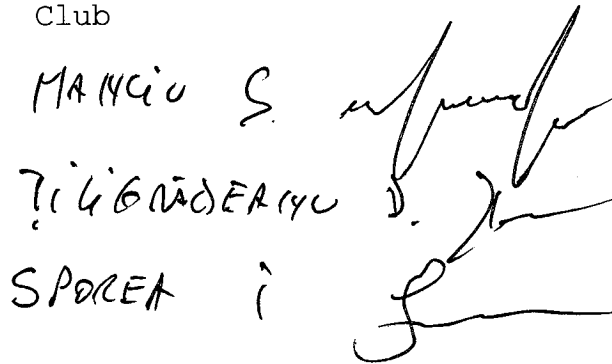 Club
MANCiU S.
ȚiLiGRĂDEANU D.
SPOREA i